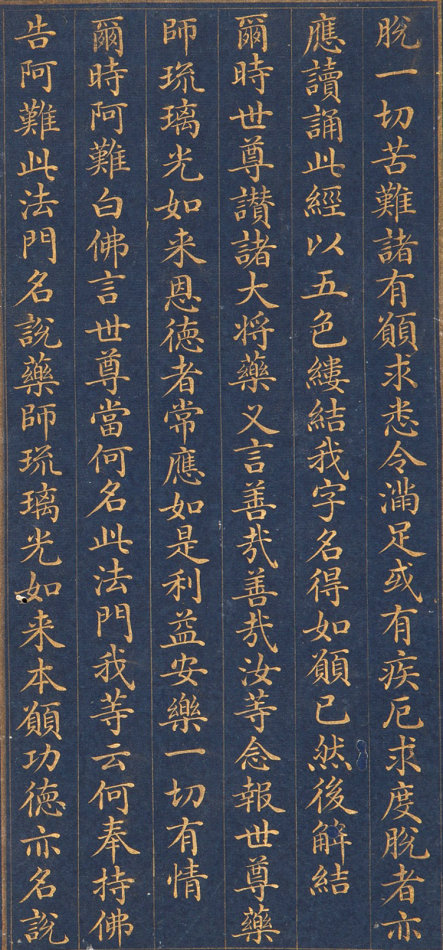 脫一切苦難諸有願求悉令滿足或有疾厄求度脫者亦
應讀誦此經以五色縷結我字名得如願已然後解結
爾時世尊讃諸大将藥叉言善哉善哉汝等念報世尊藥
師琉璃光如来恩德者常應如是利益安樂一切有情
爾時阿難白佛言世尊當何名此法門我等云何奉持佛
告阿難此法門名說藥師琉璃光如来本願功德亦名說